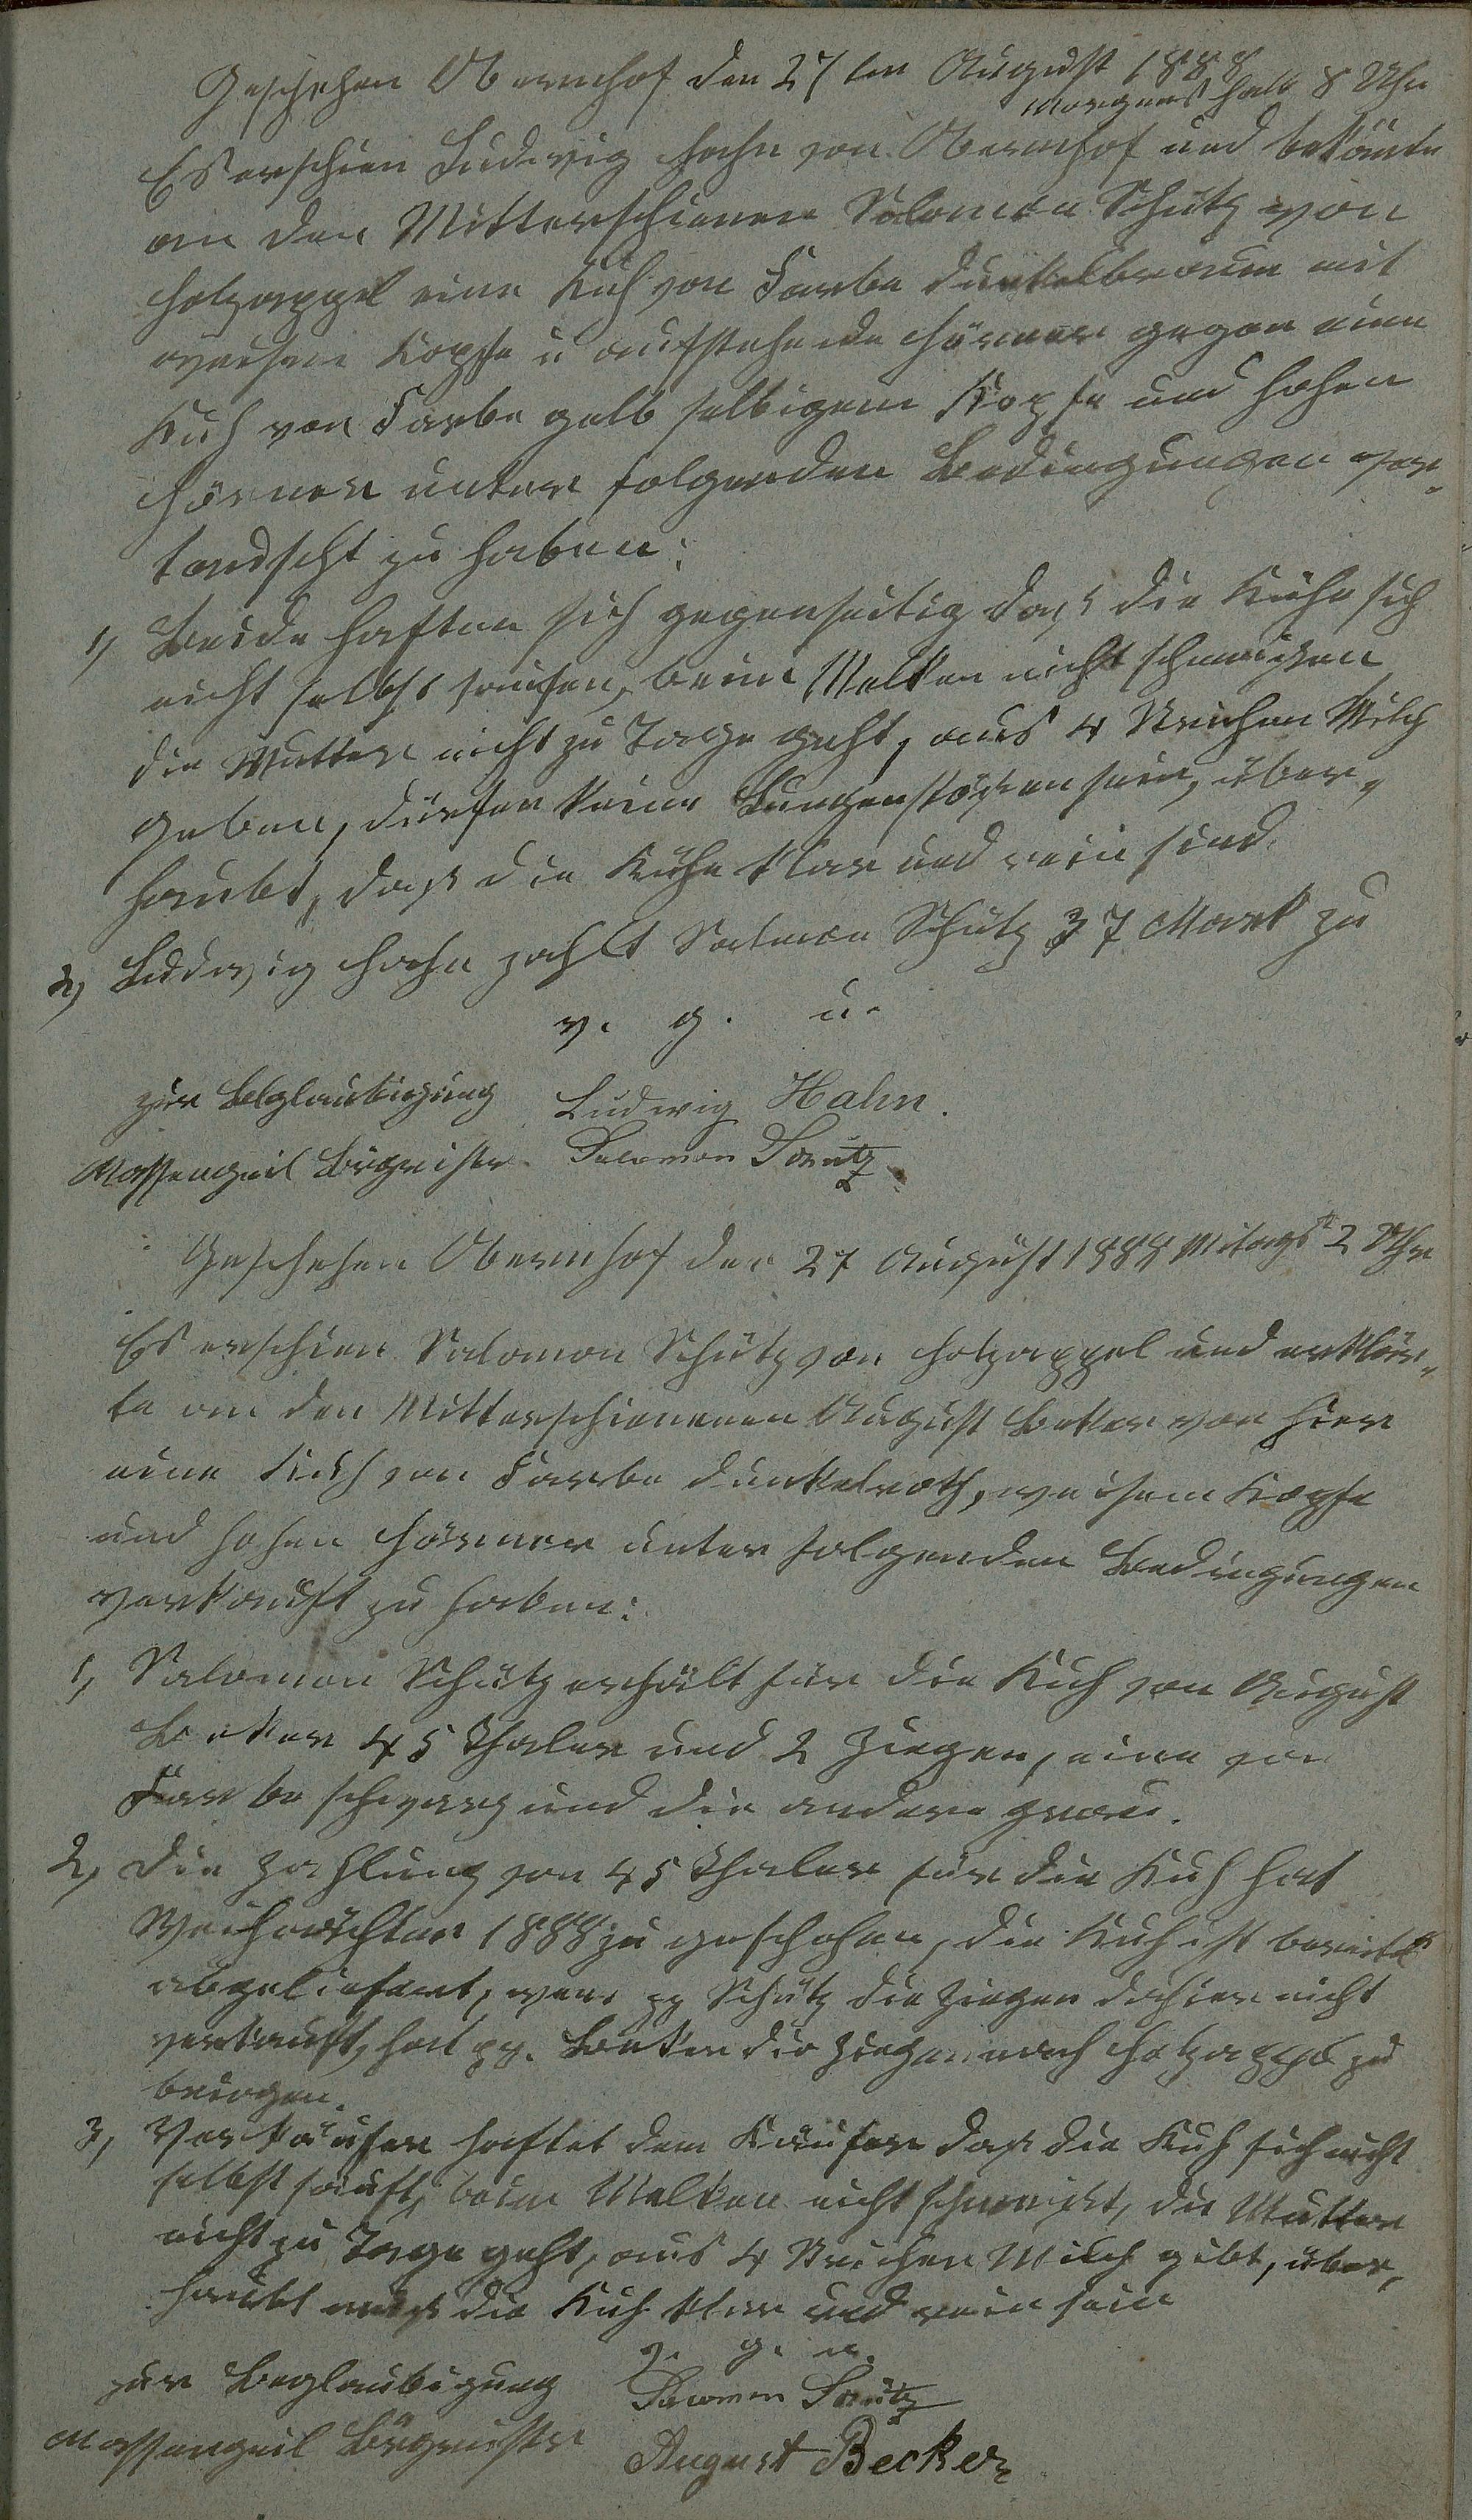 Geschehen Obernhof den 27ten August 1888
Morgens halb 8 Uhr
Es erschien Ludwig Hahn von Obernhof und bekänte
an den Mitterschienen Salomon Schütz von
Holzappel eine Kuh von Farbe dunkelbraun mit
weisem Kopfe u aufstehende Hörner gegen eine
Kuh von Farbe gelb selbigem Kopfe und hohen
Hörner unter folgenden Bedingungen ver-
tauscht zu haben:
1, Beide haften sich gegenseitig daß die Kühe sich
nicht selbst saufen, beim Melken nicht schmeißen
die Mutter nicht zu Tage geht, aus 4 Strichen Milch
geben, dürfen keine Lungenstößer sein, über-
haubt, daß die Kühe klar und rein sind.
2, Ludwig Hahn zahlt Salmon Schütz 37 Mark zu
v. g. u.
zur Beglaubigung Ludwig Hahn.
Massengeil Bürgmeister Salomon Schütz
Geschehen Obernhof den 27 August 1888 Mitags 2 Uhr
Es erschien Salomon Schütz von Holzappel und erklär-
te an den Mitterschienenen August Beker von hier
eine Kuh von Farbe dunkelroth, weisem Kopfe
und hohen Hörner unter folgenden Bedingungen
verkauft zu haben:
1, Salomon Schütz erhält für die Kuh von August
Beker 45 Thaler und 2 Ziegen, eine von
Farbe schwarz und die andere grau.
2, Die Zahlung von 45 Thaler für die Kuh hat
Weihnachten 1888 zu geschehen, die Kuh ist bereits
abgeliefert, wenn pp Schütz die Ziegen dahier nicht
verkauft, hat pp. Beker die Ziegen nach Holzappel zu
bringen.
3, Verkäufer haftet dem Käufer daß die Kuh sich nicht
selbst säuft, beim Melken nicht schmeißt, die Mutter
nicht zu Tage geht, aus 4 Strichen Milch gibt, über-
haubt muß die Kuh klar und rein sein
v. g. u.
zur Beglaubigung Salomon Schütz
Massengeil Bürgmeister August Becker